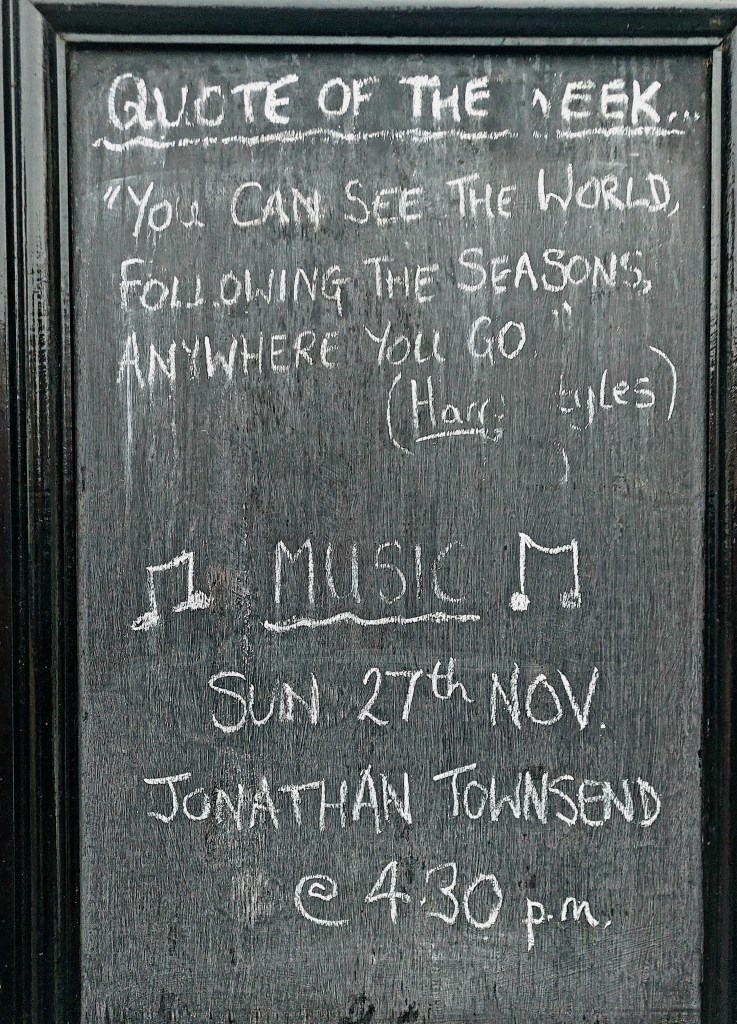 QUOTE OF THE WEEK...
"YOU CAN SEE THE WORLD,
FOLLOWING THE SEASONS,
ANYWHERE YOU GO."
(Harry Styles)
MUSIC
SUN 27th NOV.
JONATHAN TOWNSEND
@ 4.30 p.m.